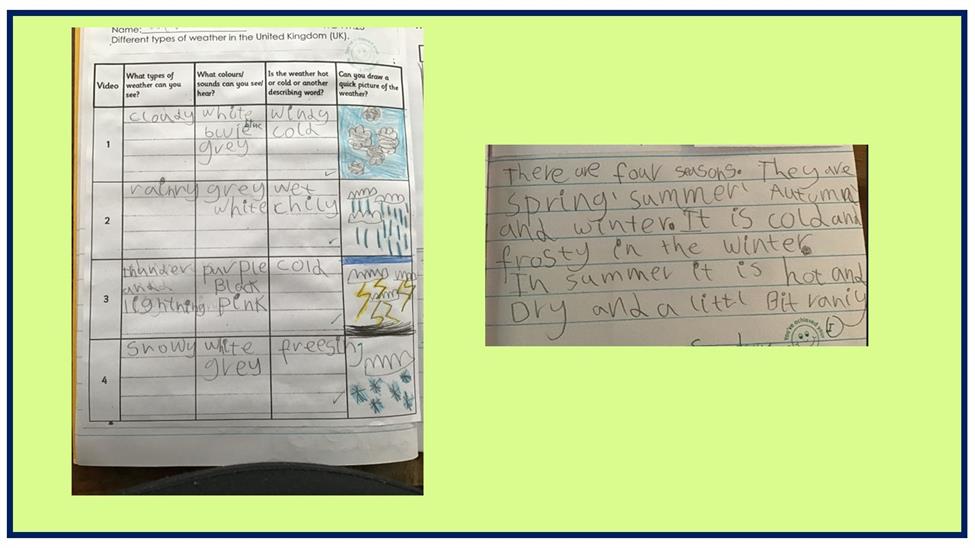 Name:
Different types of weather in the United Kingdom (UK).
Video
What types of weather can you see?
What colours/ sounds can you see/ hear?
Is the weather hot or cold or another describing word?
Can you draw a quick picture of the weather?
1
cloudy
white
blue
grey
windy
cold
2
rainny
grey
white
wet
chily
3
thunder
and
lightning
purple
Black
pink
cold
4
snowy
white
grey
freesing
There are four seasons. They are
spring, summer, Autumn
and winter. It is cold and
frosty in the winter.
In summer it is hot and
Dry and a littl Bit raniy
You've achieved your